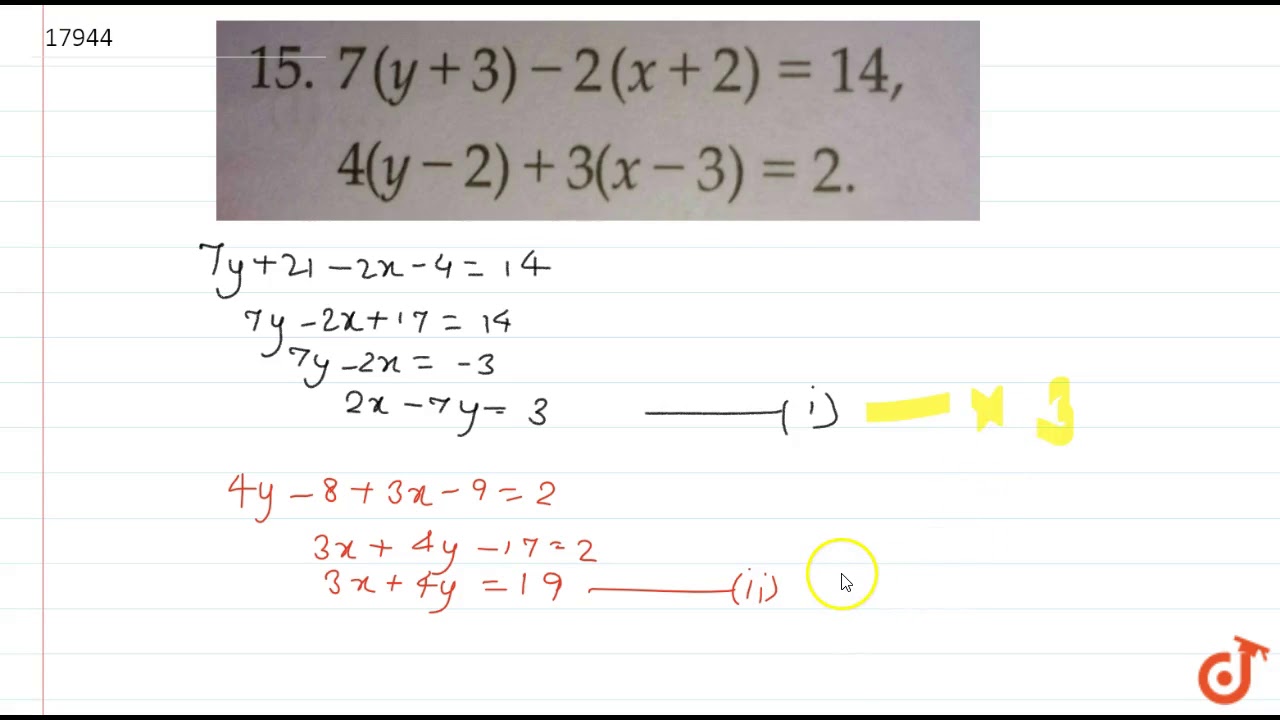 17944
15. 7(y+3)-2(x+2)=14,
4(y-2)+3(x-3)=2.
7y+21-2x-4=14
7y-2x+17=14
7y-2x=-3
2x-7y=3 ———(i) — × 3
4y-8+3x-9=2
3x+4y-17=2
3x+4y=19 ———(ii)
d